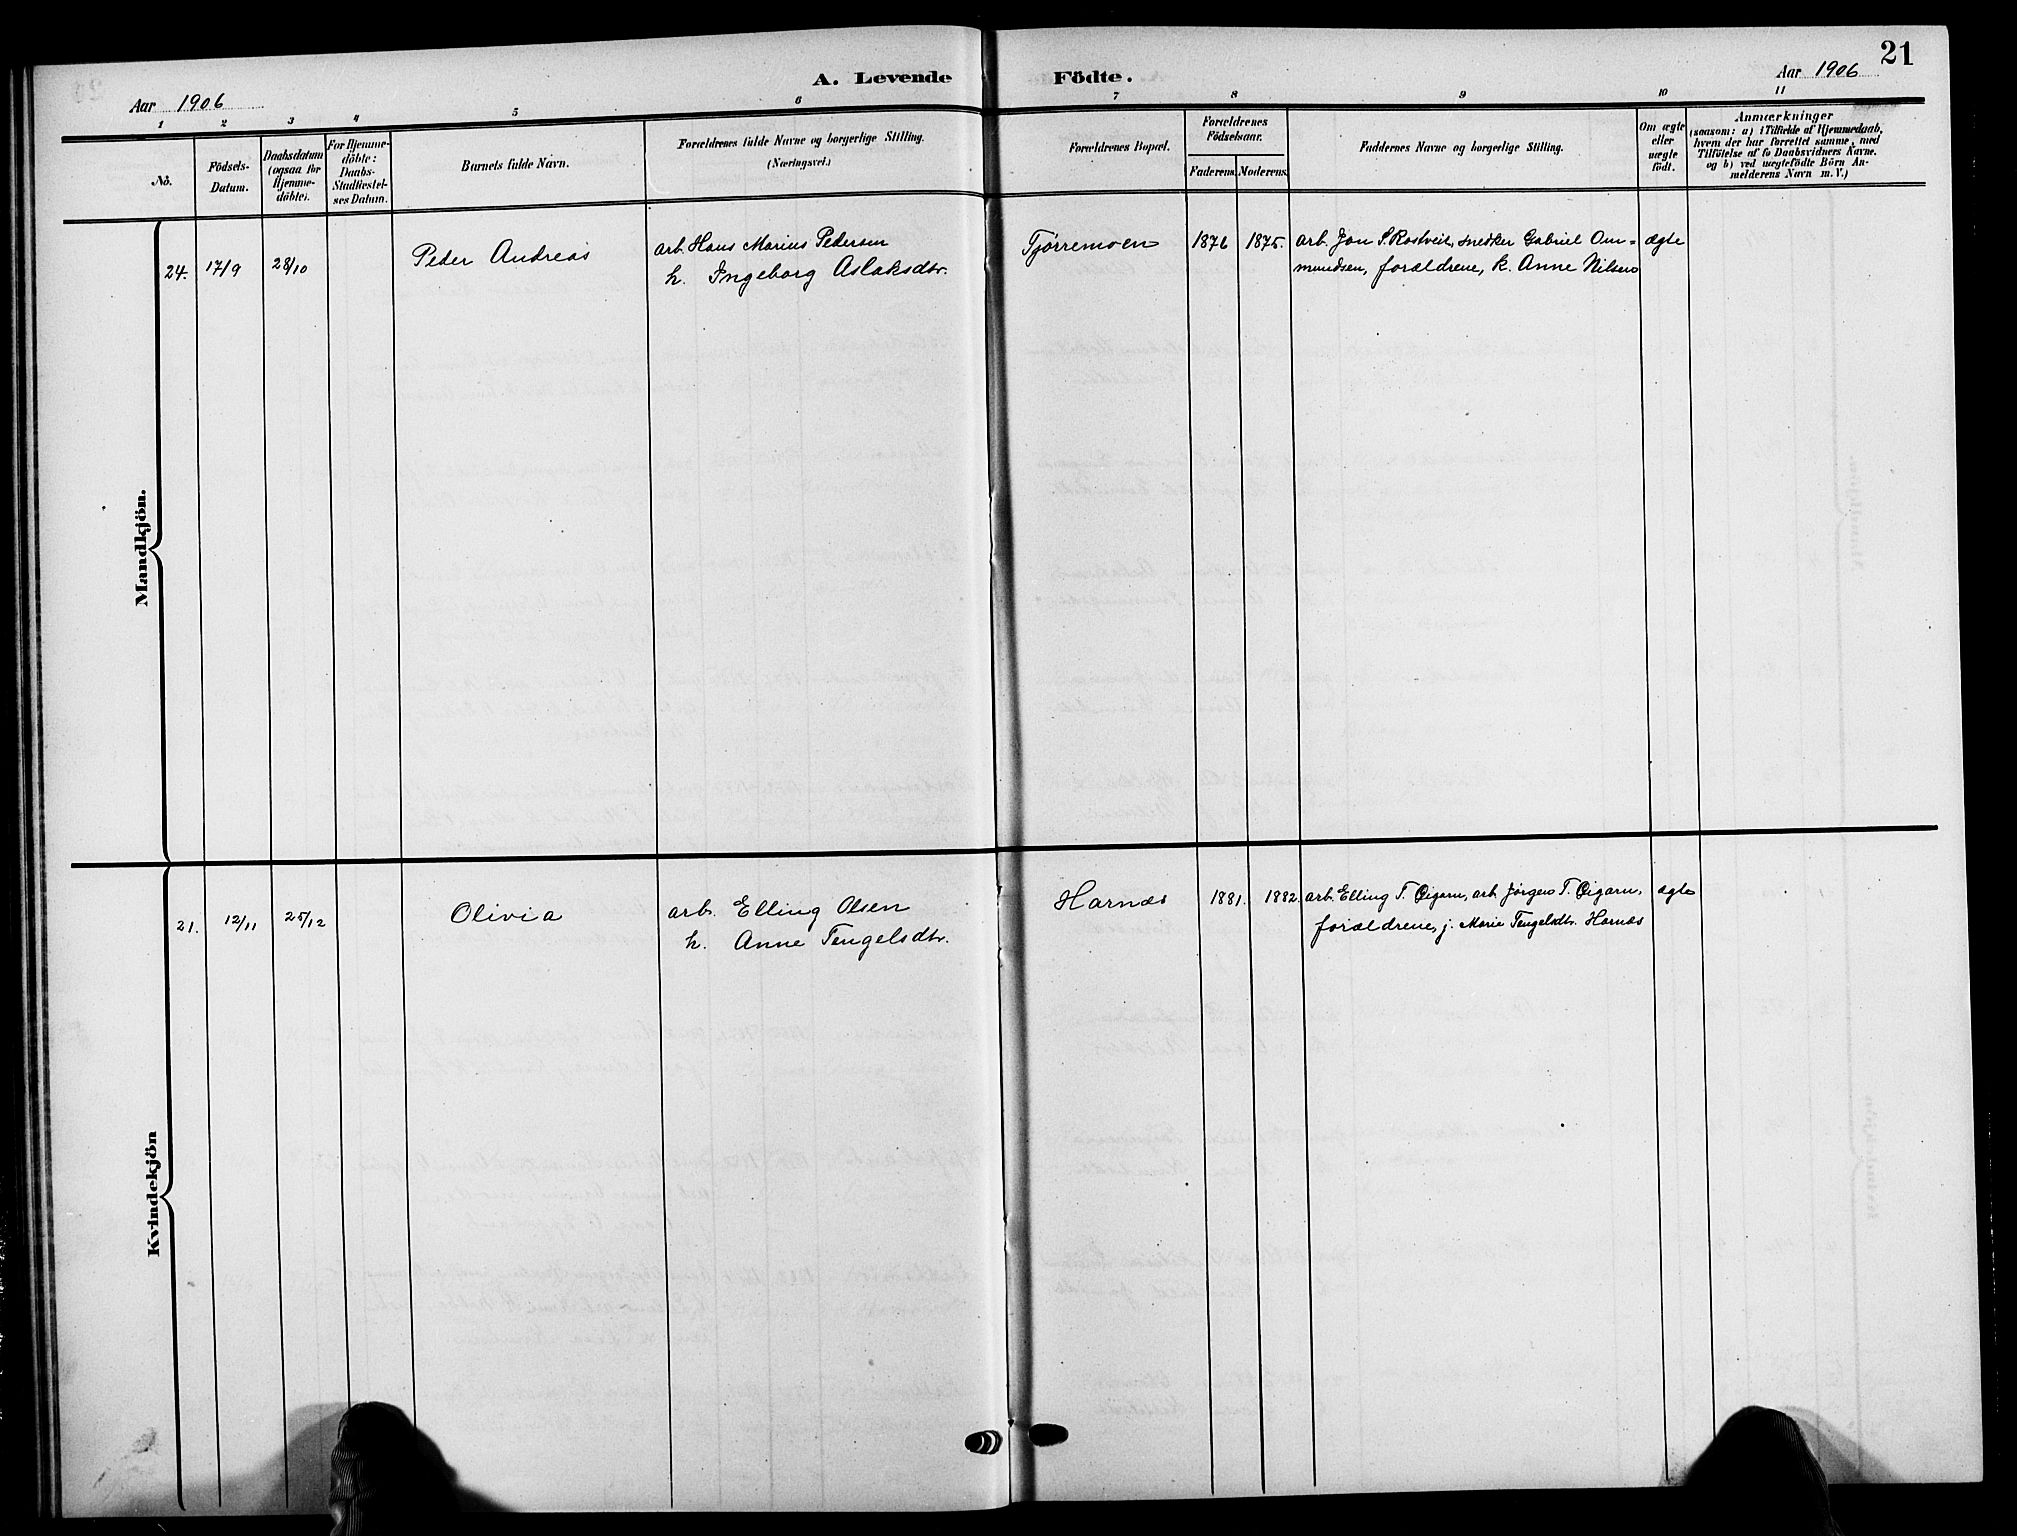 21
A. Levende Födte.
Aar 1906
Aar 1906
1 2 3 4 5 6 7 8 9 10 11
No.
Födsels-
Datum.
Daabsdatum
(ogsaa for
Hjemme-
döbte).
For Hjemme-
döbte:
Daabs-
Stadfæstel-
ses Datum.
Barnets fulde Navn.
Forældrenes fulde Navne og borgerlige Stilling.
(Næringsvei.)
Forældrenes Bopæl.
Forældrenes
Födselsaar.
Faderens. Moderens.
Faddernes Navne og borgerlige Stilling.
Om ægte
eller
uægte
født.
Anmærkninger
(saasom: a) i Tilfælde af Hjemmedaab,
hvem der har forrettet samme, med
Tilföielse af to Daabsvidners Navne.
og b) ved uægtefödte Börn An-
melderens Navn m. V.)
Mandkjön.
24. 17/9 28/10 Peder Andreas
arb. Hans Marius Pedersen
h. Ingeborg Aslaksdtr.
Tjørremoen 1876 1875.
arb. Jon S. Rostveit, snedker Gabriel Om=
mundsen, forældrene, k. Anne Nilsen
ægte
Kvindekjön
21. 12/11 25/12 Olivia
arb. Elling Olsen
h. Anne Tengelsdtr.
Harnæs 1881. 1882.
arb. Elling T. Eigarn, arb. Jørgen T. Eigarn,
forældrene, j. Marie Tengelsdtr. Harnæs
ægte